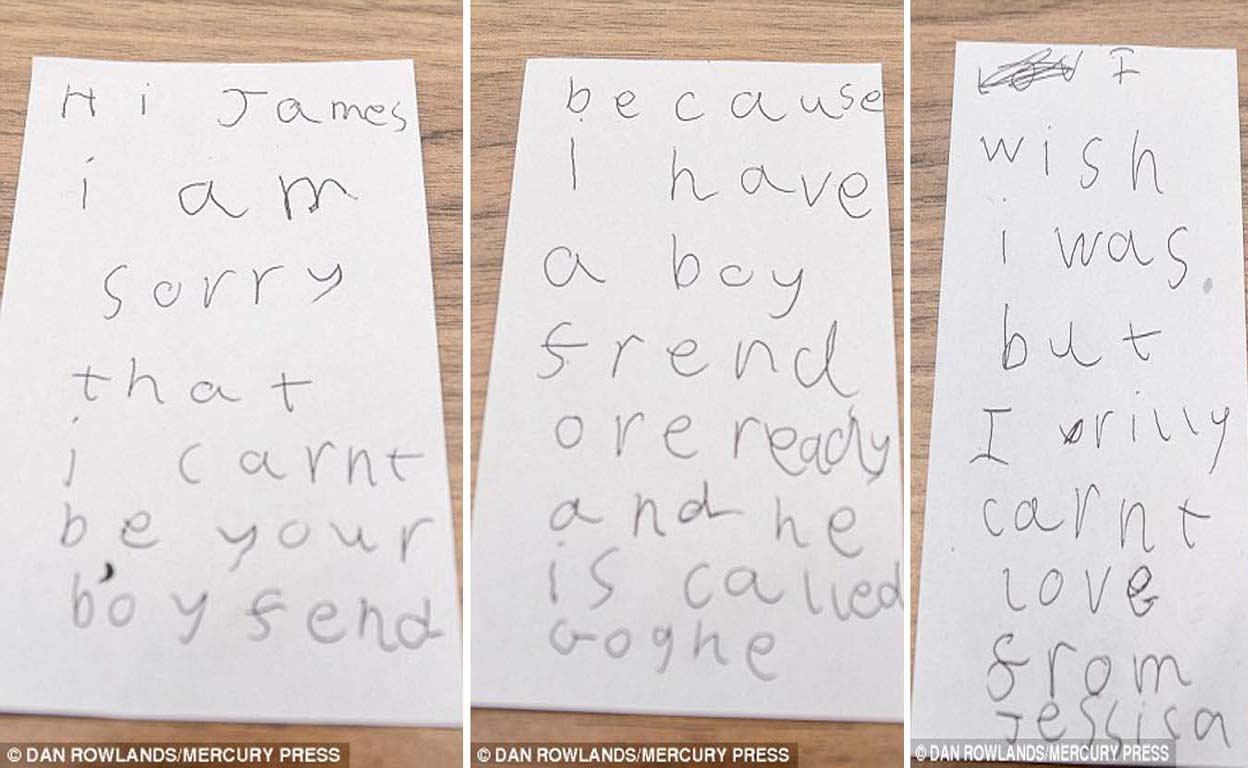 Hi James
i am
sorry
that
i carnt
be your
boy fend
© DAN ROWLANDS/MERCURY PRESS
because
I have
a boy
frend
oreready
and he
is called
© DAN ROWLANDS/MERCURY PRESS
I
wish
i was.
but
I rilly
carnt
love
from
Jessica
© DAN ROWLANDS/MERCURY PRESS